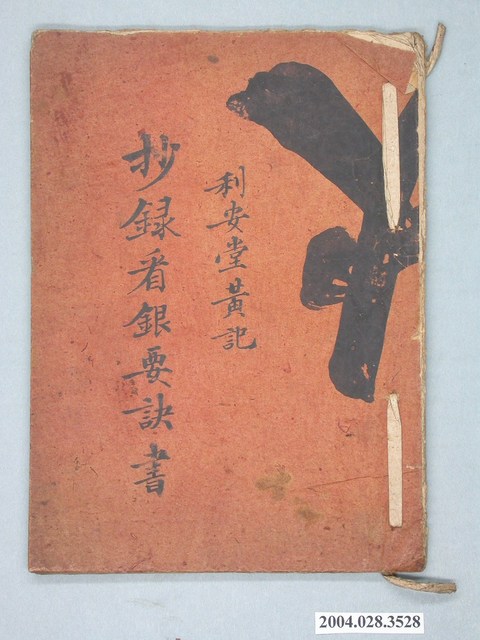 利安堂黃記
抄録看銀要訣書
2004.028.3528